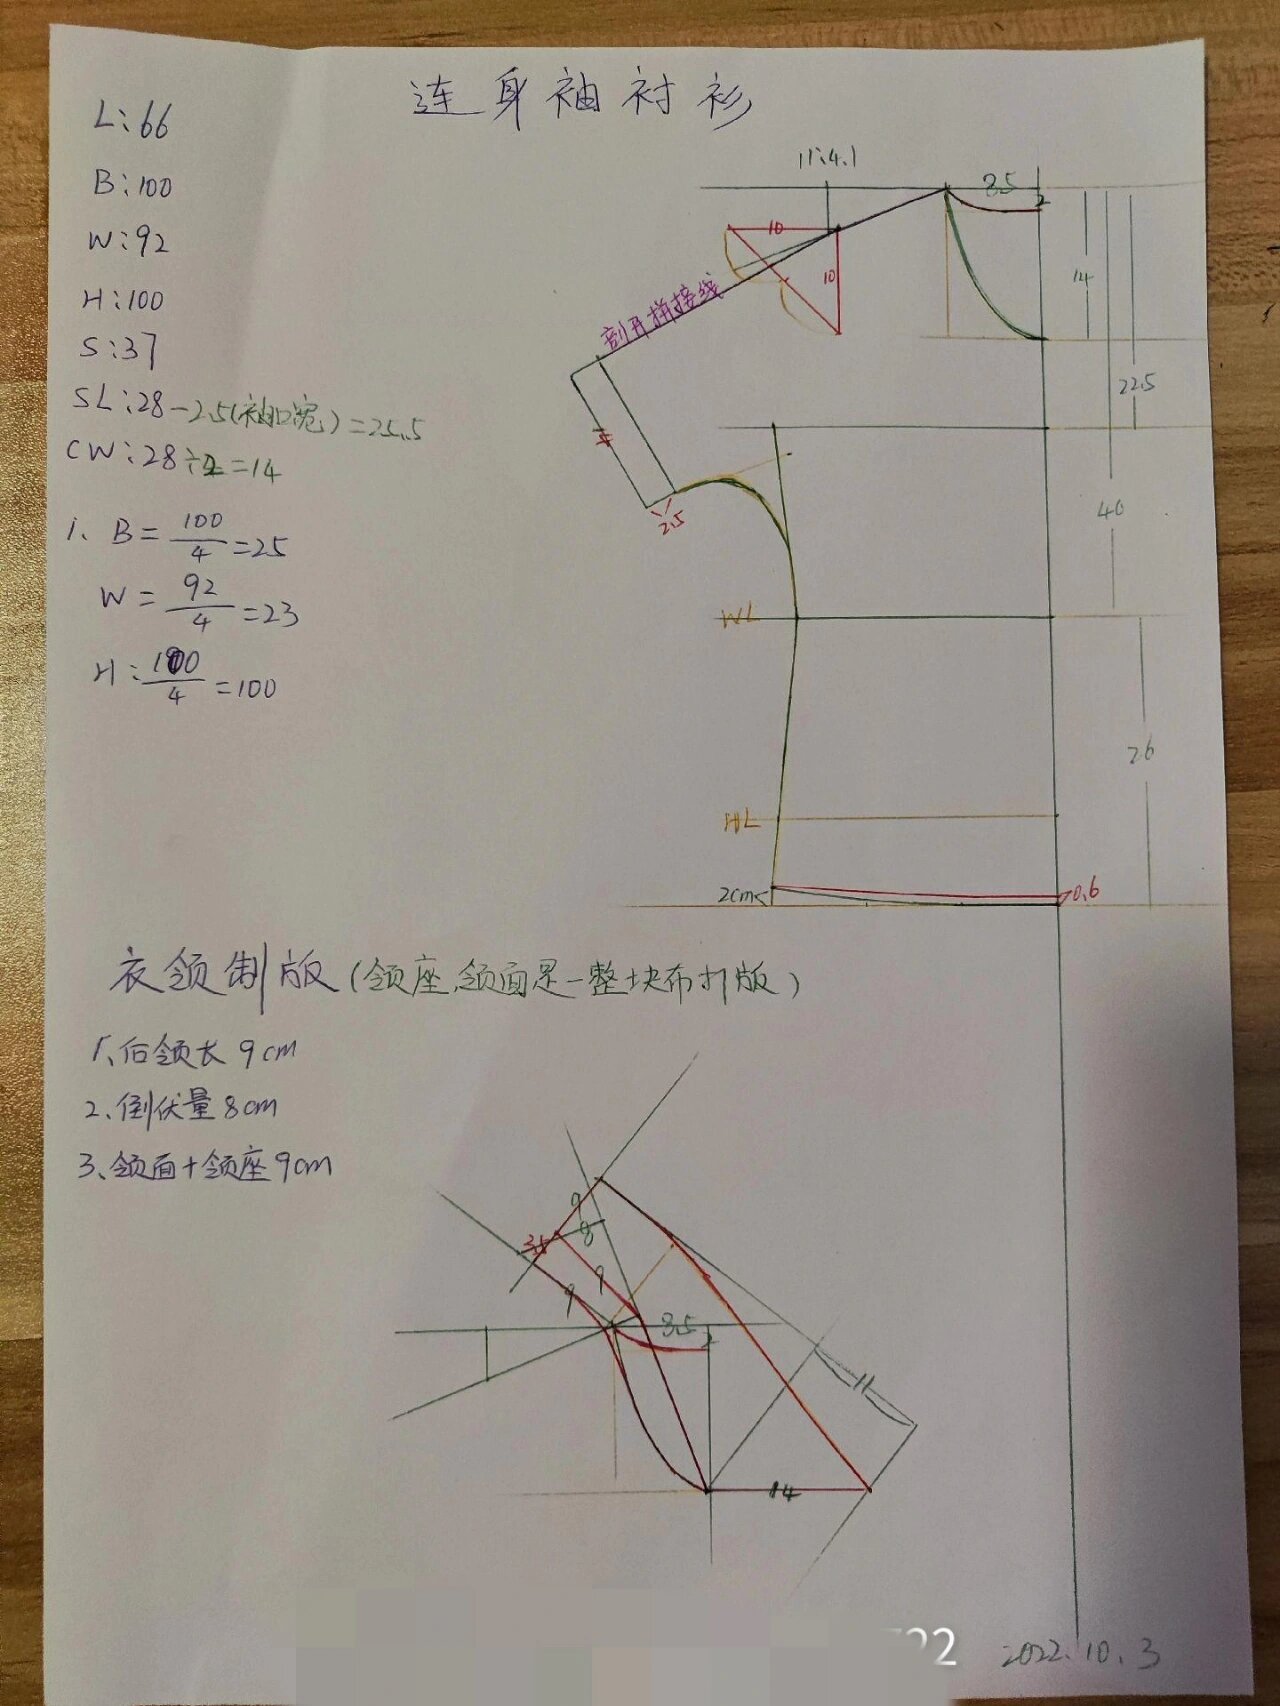 连身袖衬衫
L:66
B:100
W:92
H:100
S:37
SL:28-2.5(袖口宽)=25.5
CW:28÷2=14
1、B=100/4=25
W=92/4=23
H:100/4=100
11:4.1
8.5
2
10
10
14
22.5
剖开拼接线
2.5
40
WL
26
HL
2cm
0.6
衣领制版(领座、领面是一整块布打版)
1、后领长9cm
2、倒伏量8cm
3、领面+领座9cm
9
8
3.5
9
9
8.5
2
14
722
2022.10.3